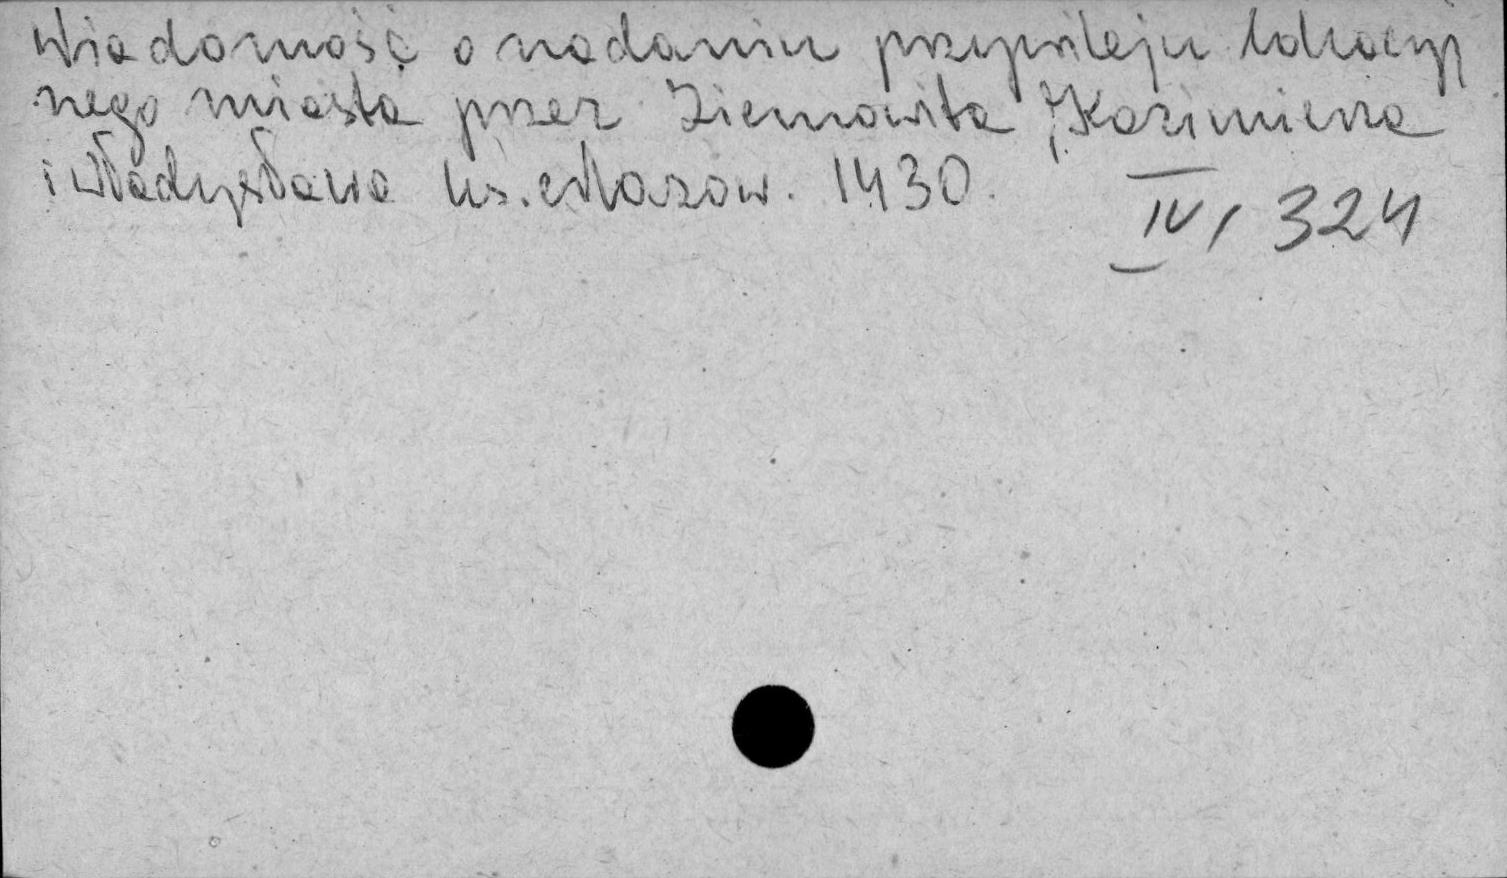 Wiadomość o nadaniu przywileju lokacyj
nego miasta przez Ziemowita, Kazimierza
i Władysława ks. Mazow. 1430.
IV, 324